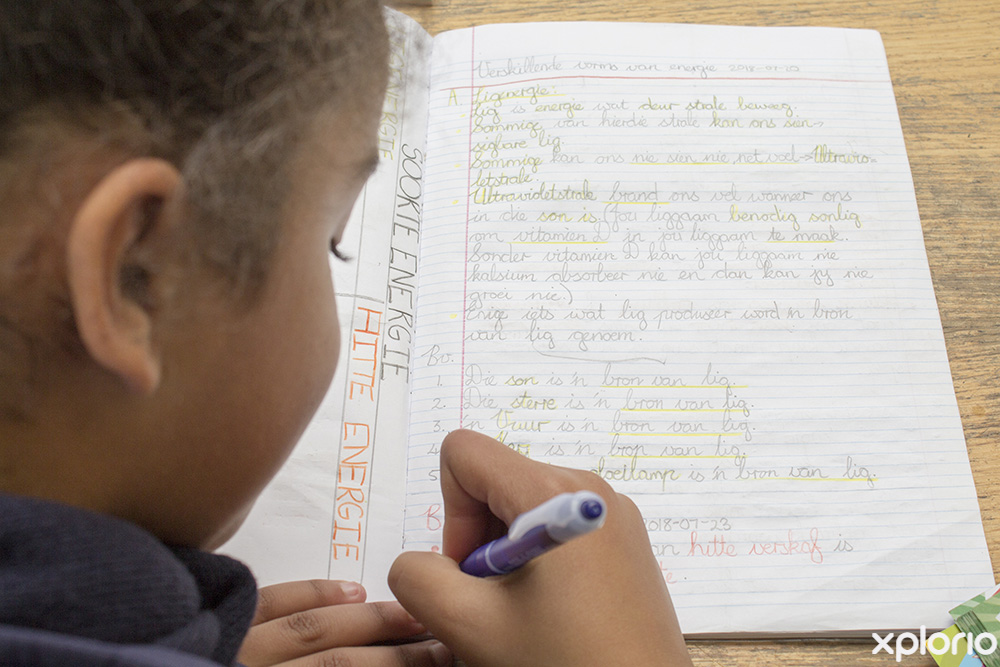 Verskillende vorms van energie 2018-07-20
A. Ligenergie:
Lig is energie wat deur strale beweeg.
Sommige van hierdie strale kan ons sien→
sigbare lig.
Sommige kan ons nie sien nie net voel→Ultravio-
letstrale.
Ultravioletstrale brand ons vel wanneer ons
in die son is. (Jou liggaam benodig sonlig
om vitamien D in jou liggaam te maak.
Sonder vitamien D kan jou liggaam nie
kalsium absorbeer nie en dan kan jy nie
groei nie.)
Enige iets wat lig produseer word 'n bron
van lig genoem.
Bv.
1. Die son is 'n bron van lig.
2. Die sterre is 'n bron van lig.
3. 'n Vuur is 'n bron van lig.
4. is 'n bron van lig.
5. gloeilamp is 'n bron van lig.
B 2018-07-23
hitte verskaf is
ENERGIE
HITTE ENERGIE
xplorio